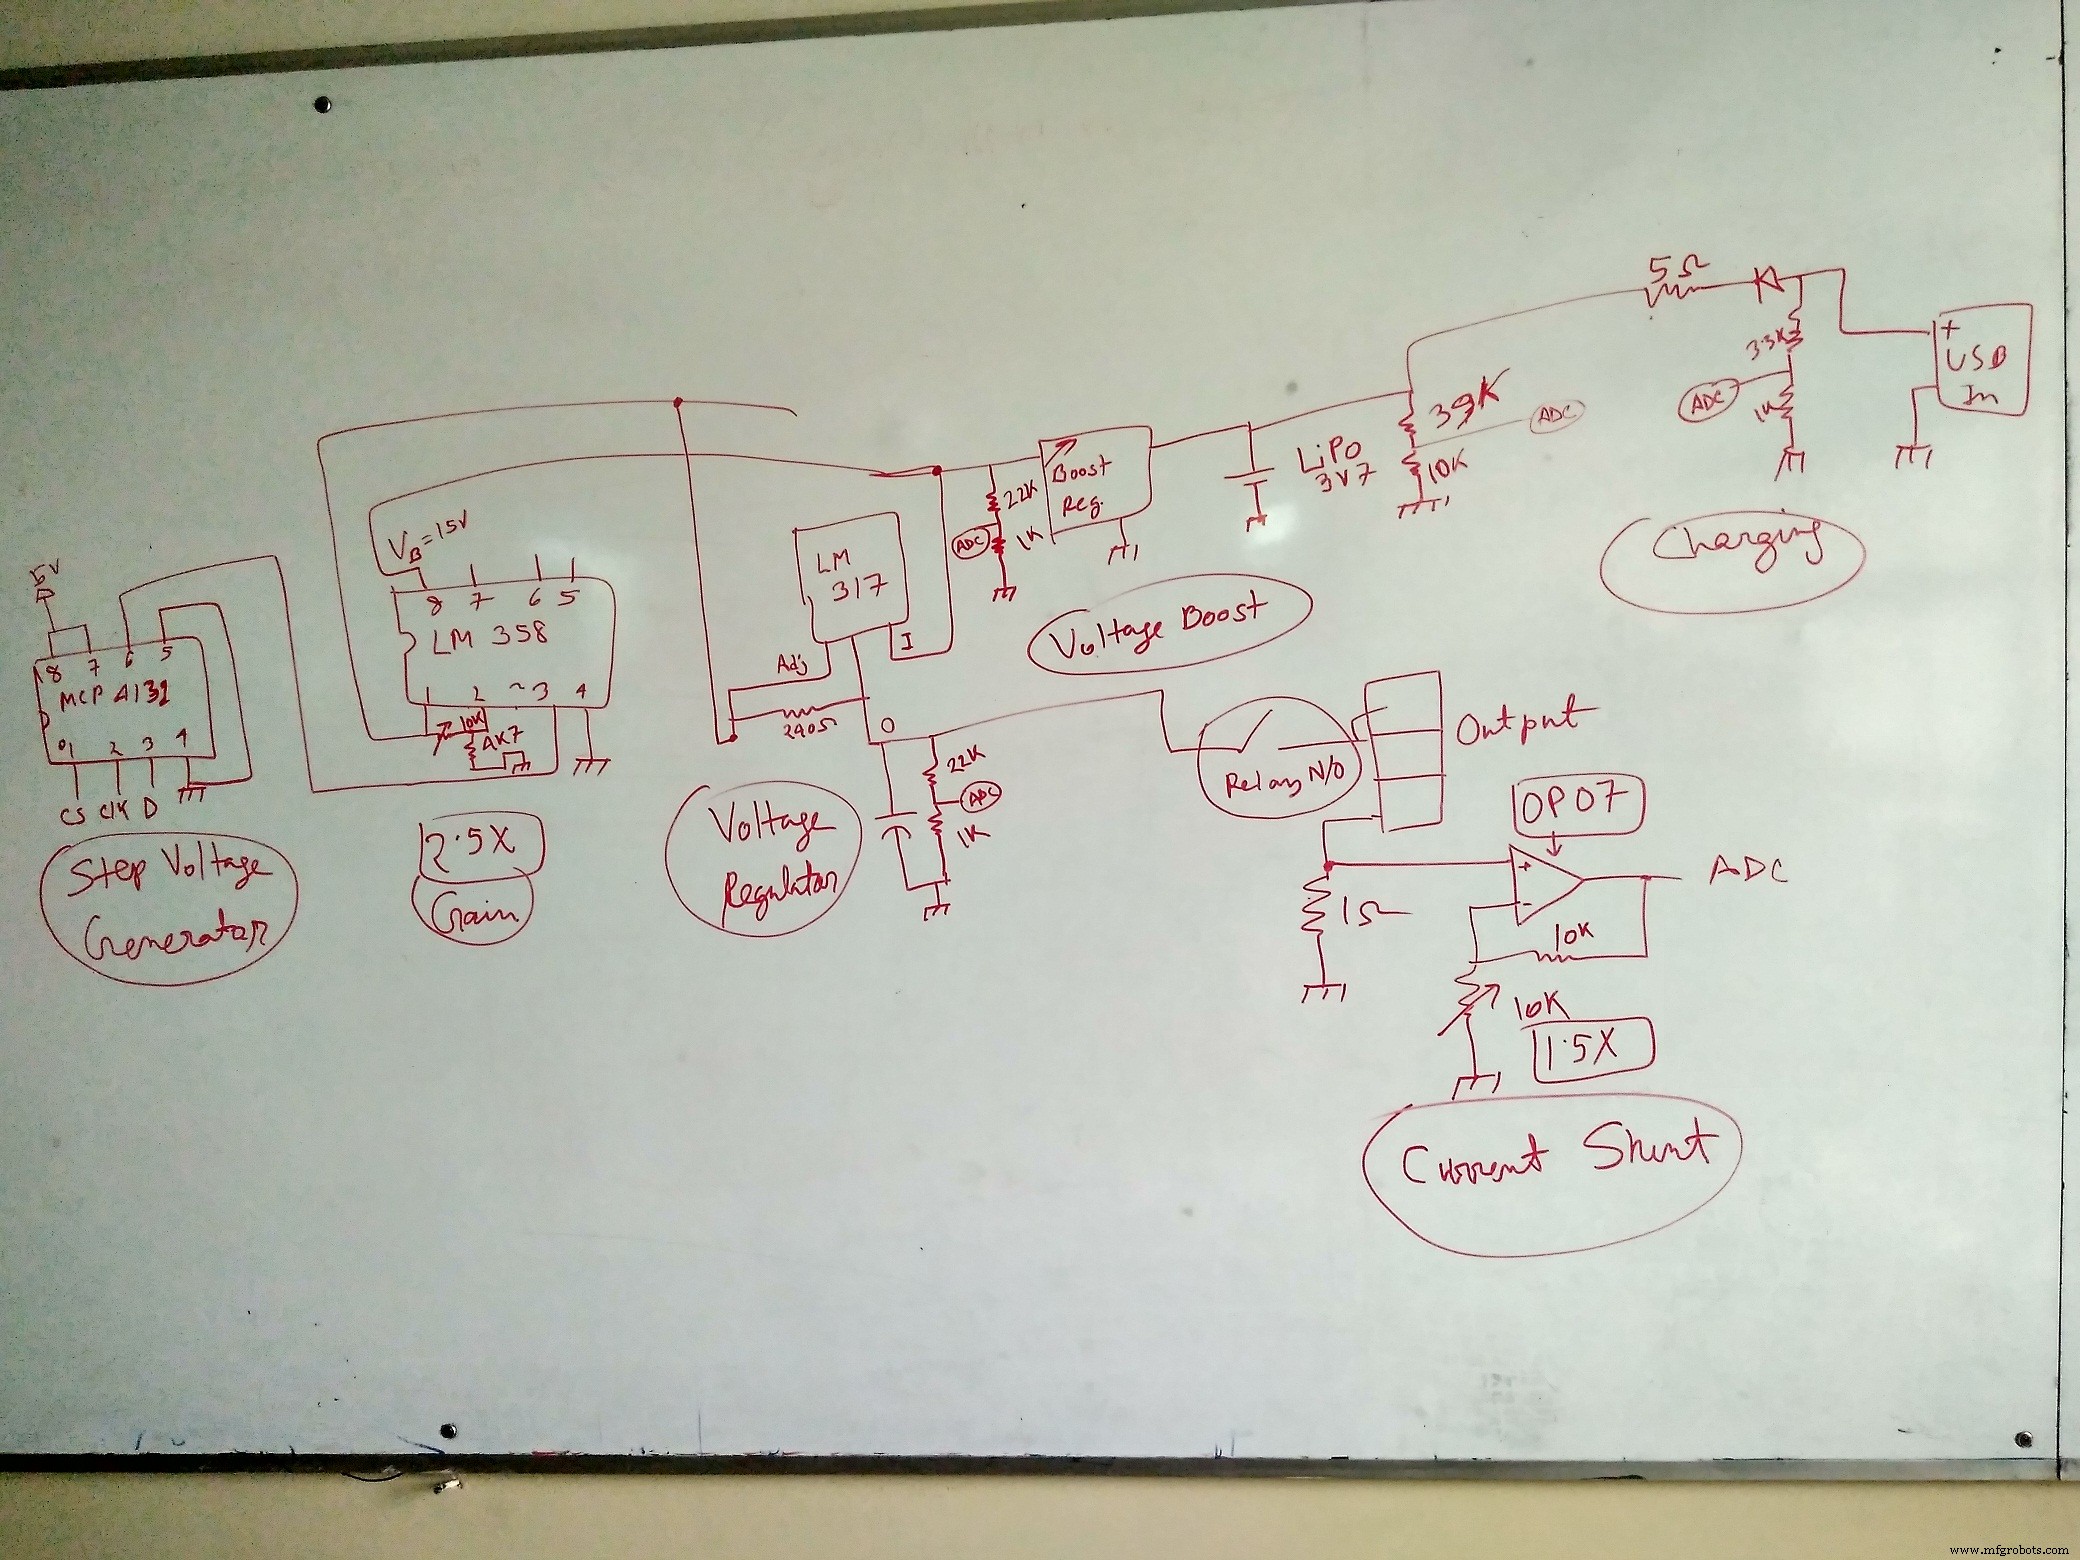 5V
8 7 6 5
MCP 4132
1 2 3 4
CS CLK D
Step Voltage
Generator
VB=15V
8 7 6 5
LM 358
1 2 3 4
10K
4K7
2.5X
Gain
LM
317
Adj
I
240Ω
O
22K
ADC
1K
Voltage
Regulator
22K
ADC
1K
Boost
Reg.
Voltage Boost
LiPo
3V7
39K
ADC
10K
5Ω
3.3K
ADC
1K
+
USB
In
Charging
Relay N/O
Output
OP07
+
-
ADC
1Ω
10K
10K
1.5X
Current Shunt
www.mfgrobots.com